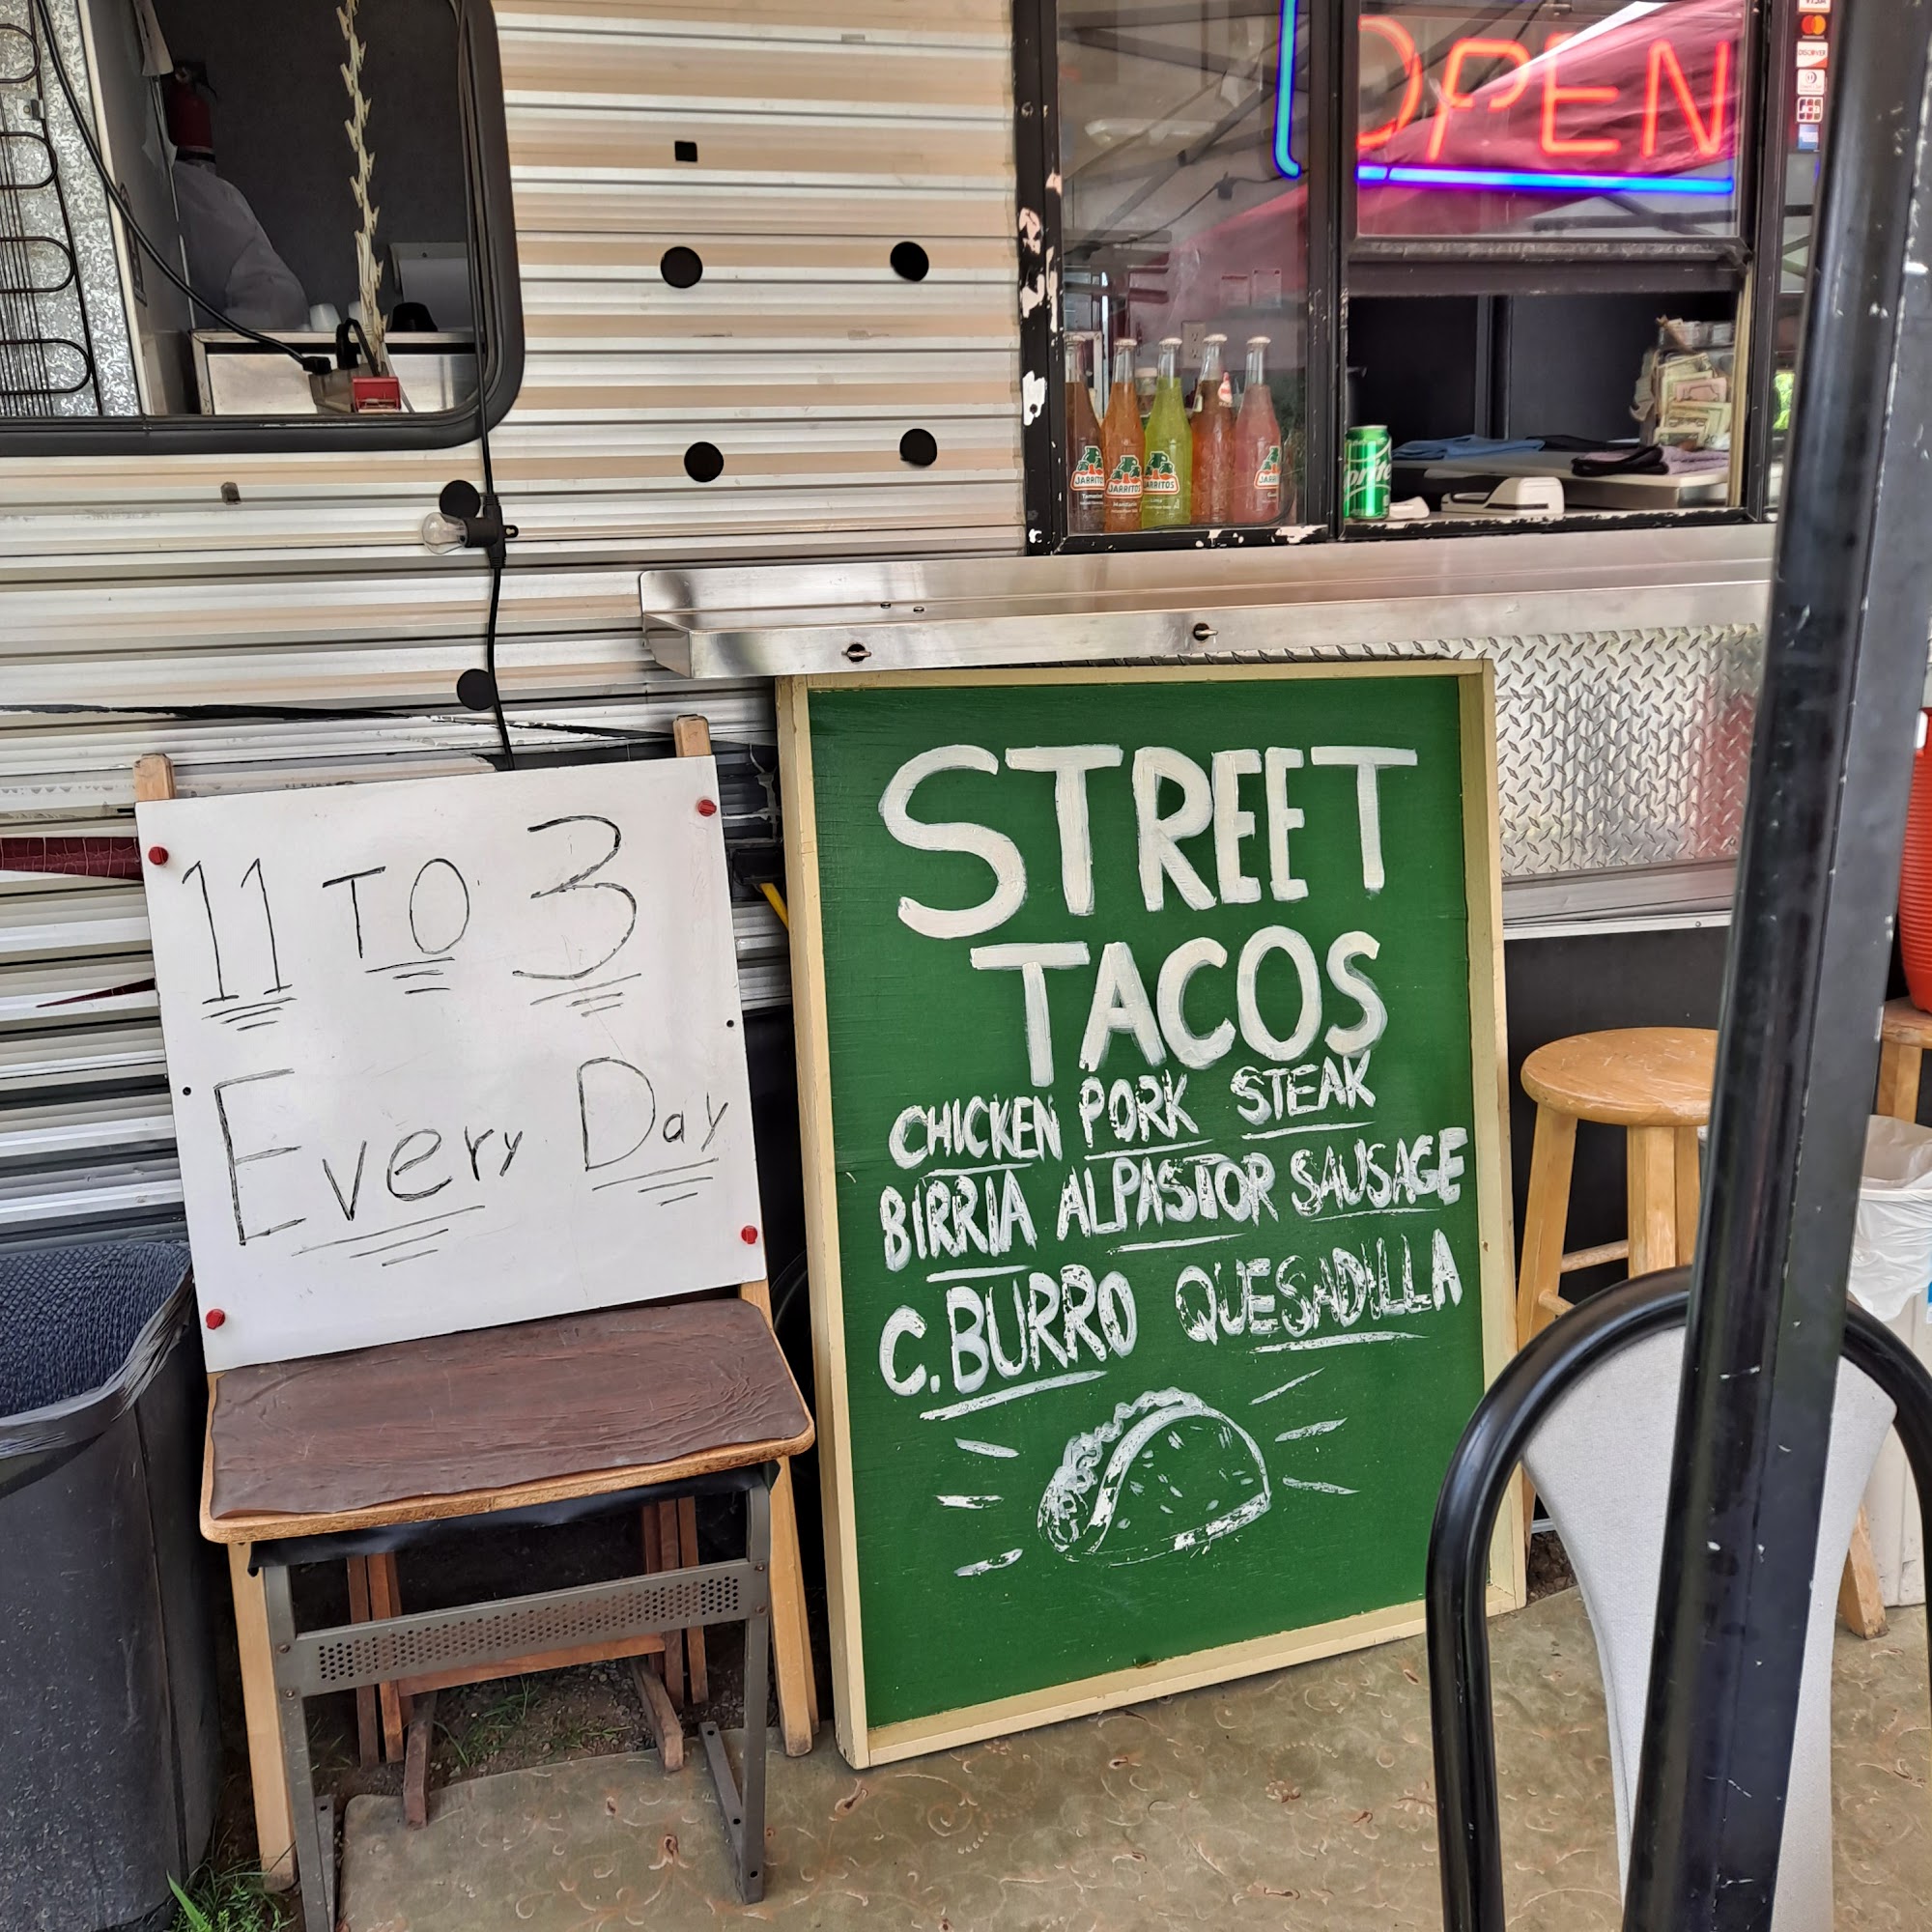 VISA
DISCOVER
JCB
OPEN
JARRITOS
JARRITOS
JARRITOS
JARRITOS
Sprite
11 TO 3
Every Day
STREET
TACOS
CHICKEN PORK STEAK
BIRRIA ALPASTOR SAUSAGE
C. BURRO QUESADILLA